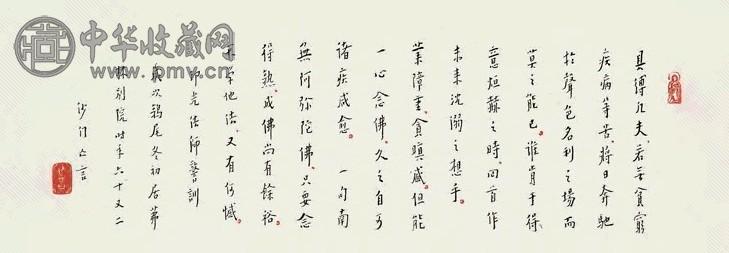 中华收藏网
www.pmv.cn
具縛凡夫,若无貧窮
疾病等苦,將日奔馳
於聲色名利之場而
莫之能已。誰肯于得
意烜赫之時,回首作
未来沈溺之想乎。
業障重、貪瞋盛,但能
一心念佛,久之自可
諸疾咸愈。 一句南
無阿弥陀佛,只要念
得熟,成佛尚有餘裕。
不學他法,又有何憾。
印光法師警訓
歲次鶉尾冬初居茀
林别院時年六十又二
沙门亡言